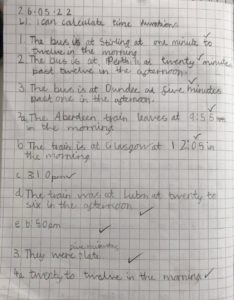 26.05.22
LI: I can calculate time durations
1. The bus is at Stirling at one minute to
twelve in the morning
2. The bus is at Perth at twenty minutes
past twelve in the afternoon
3. The bus is at Dundee at five minutes
past one in the afternoon.
2a The Aberdeen train leaves at 9:55am
in the morning
b The train is at Glasgow at 12:05 in
the morning
c 3:10pm
d. The train was at Luton at twenty to
six in the afternoon
e 6:50am
five minutes
3. They were late.
4a twenty to twelve in the morning